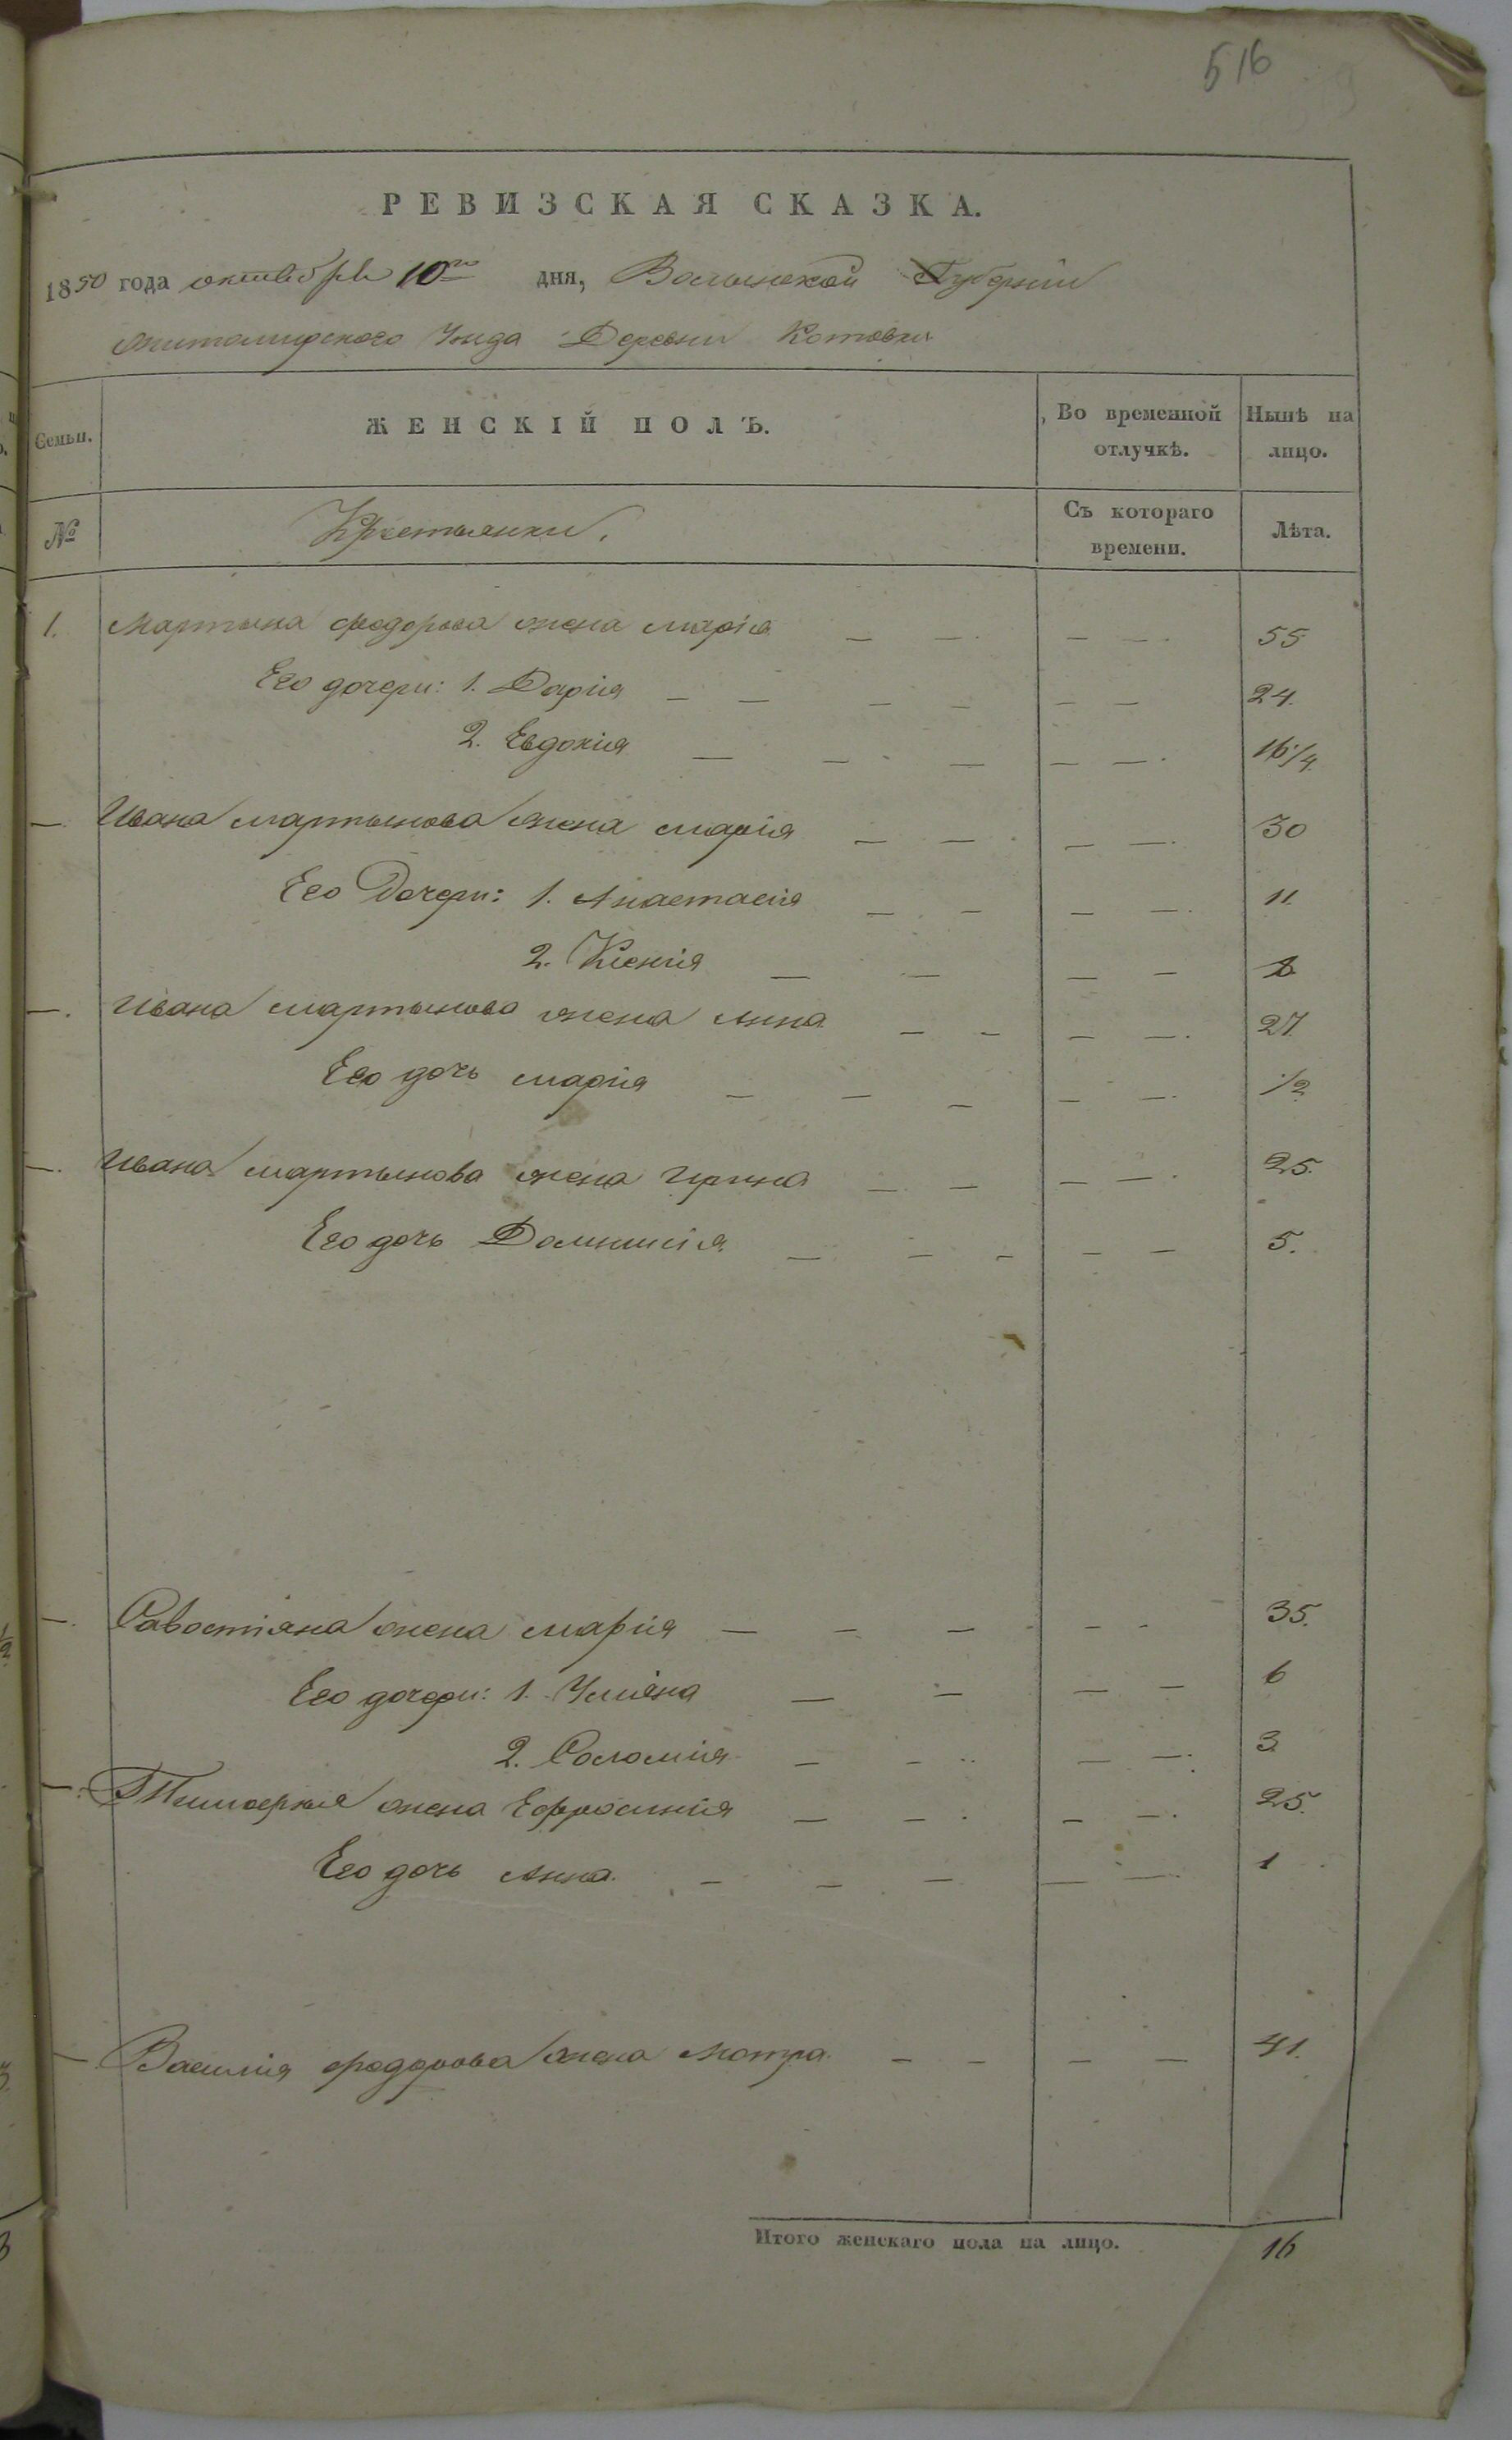 516
РЕВИЗСКАЯ СКАЗКА.
1850 года октября 10го дня, Волынской Губернии
Житомирского Уезда Деревни Котовки
Семьи. ЖЕНСКІЙ ПОЛЪ. Во временной отлучкѣ. Нынѣ на лицо.
№ Крестьянки. Съ котораго времени. Лѣта.
1. Мартына Федорова жена Марія — — — — 55
Его дочери: 1. Дарія — — — — — — 24.
2. Евдокія — — — — — 16 1/4
— Ивана Мартынова жена Марія — — — — 30
Его Дочери: 1. Анастасія — — — — 11.
2. Ксенія — — — —
— Ивана Мартынова жена Анна — — — — 27.
Его дочь Марія — — — — — 1/2
— Ивана Мартынова жена Ирина — — — — 25.
Его дочь Домникія — — — — — 5.
— Савостіяна жена Марія — — — — — 35.
Его дочери: 1. Уліяна — — — — 6
2. Соломія — — — — 3
— Тимофея жена Ефросинія — — — — 25.
Его дочь Анна — — — — — 1
— Василія Федорова жена Мотра — — — — 41.
Итого женскаго пола на лицо. 16